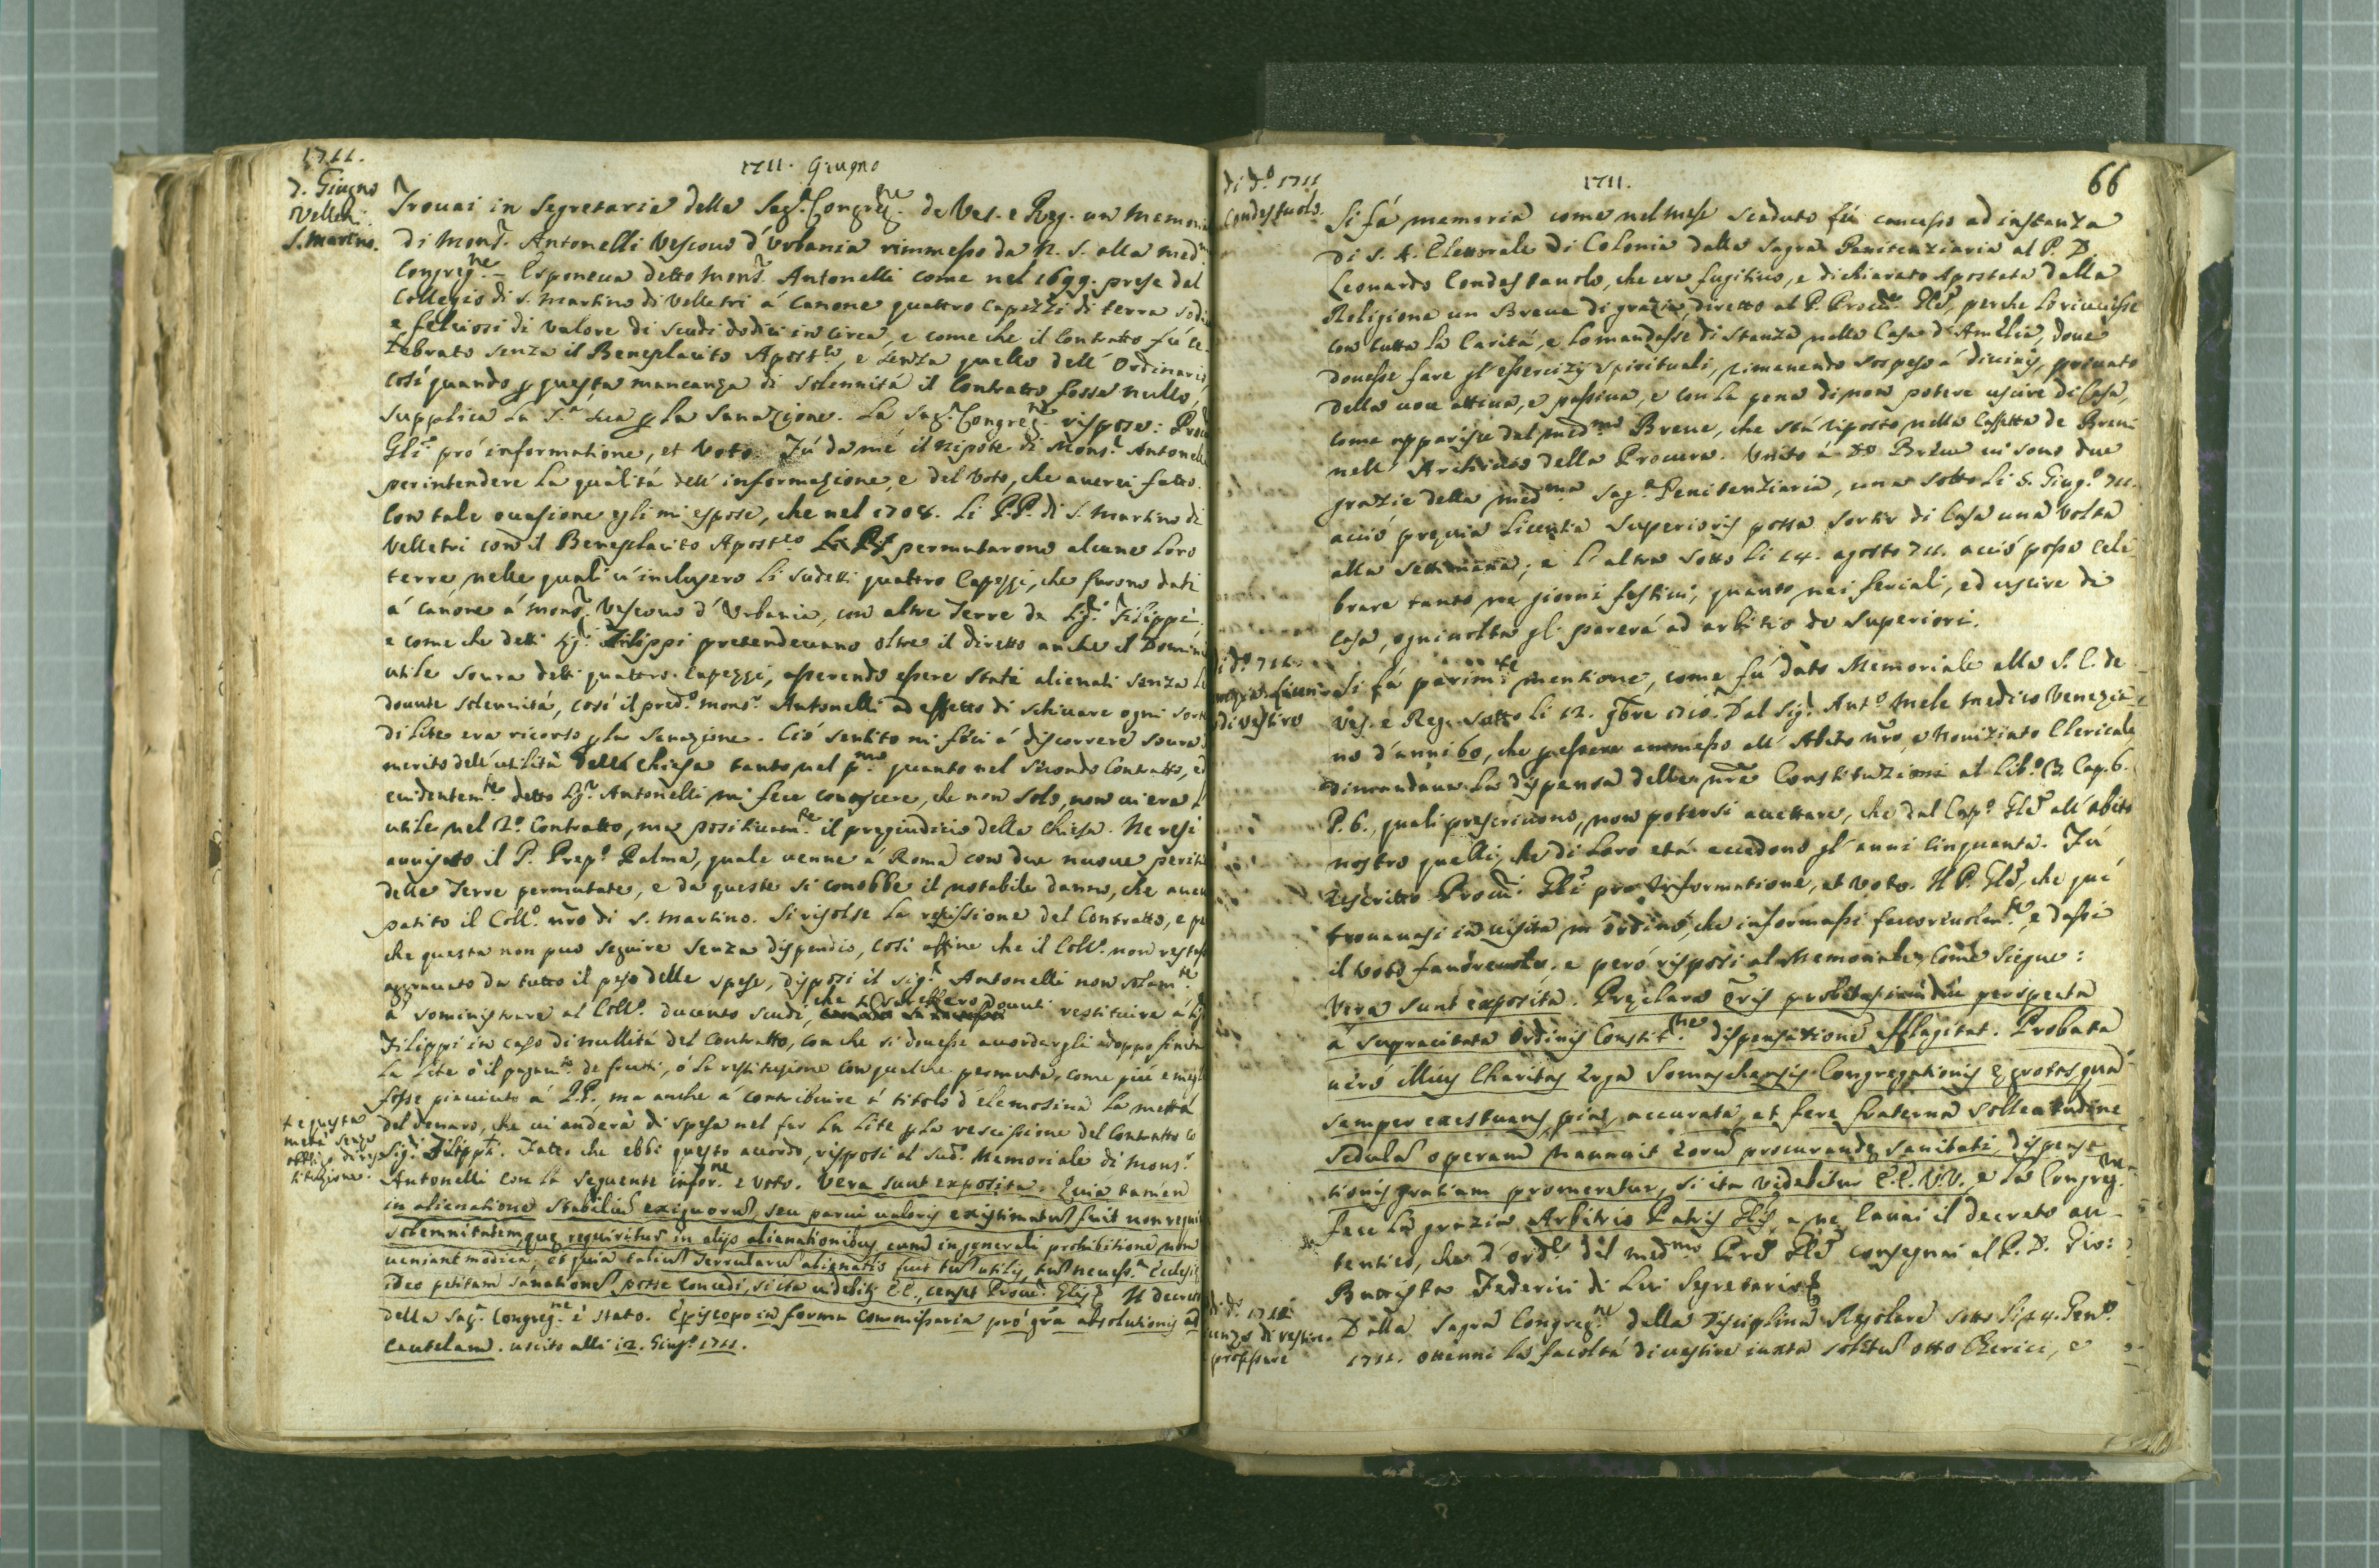 1711.
7. Giugno
Velletri.
S. Martino.
1711. Giugno
Trovai in Segretaria della Sag.ª Congreg.ne de Ves. e Reg. un memori
di Mons.r Antonelli Vescovo d'Urbania rimmesso da N. S. alla med.
Congreg.ne Esponeva detto Mons.r Antonelli come nel 1699. prese del
Collegio di S. Martino di Velletri á Canone quattro Capezzi di terra sodi
e felciosi di valore di scudi dodici in circa, e come che il Contratto fú ce-
lebrato senza il Beneplacito Apost.lo, e senza quello dell' Ordinario,
cosí quando p questa mancanza di solennitá il Contratto fosse nullo,
supplica la S.ª Sua p la Sanazione. La Sag.ª Congreg.ne rispose: Proc
Gli pró informatione, et Voto. Fú da me il Nipote di Mons.r Antonelli
per intendere la qualitá dell' informazione, e del Voto, che averei fatto.
Con tale occasione egli mi espose, che nel 1708. li P.P. di S. Martino di
Velletri con il Beneplacito Apost.co permutarono alcune loro
terre, nelle quali v'inclusero li sudetti quattro Capezzi, che furono dati
á canone á Mons.r Vescovo d'Urbania, con altre Terre de Sig.ri Filippi,
e come che detti Sig.ri Filippi pretendevano oltre il diretto anche il Domini
utile sovra detti quattro Capezzi, asserendo essere stati alienati senza le
dovute solennitá, cosí il pred.o Mons.r Antonelli ad effetto di schivare ogni sorte
di lite era ricorso p la Sanazione. Ció sentito mi féci á discorrere sovra
merito dell' utilitá della Chiesa tanto nel p.mo quanto nel secondo Contratto, ed
evidentem.te detto Sig.r Antonelli mi fece conoscere, che non solo, non vi era l'
utile nel 2.o Contratto, ma positivam.te il pregiudicio della Chiesa. Ne resi
avvisato il P. Prep.o Palma, quale venne á Roma con due nuove perizie
delle Terre permutate, e da queste si conobbe il notabile danno, che aveva
patito il Coll.o nro di S. Martino. Si risolse la rescissione del Contratto, e per
che questa non puo seguire senza dispendio, cosí affine che il Coll.o non restasse
aggravato da tutto il peso delle spese, disposi il Sig.r Antonelli non solam.te
á somministrare al Coll.o ducento scudi, che si sarebbero dovuti restituire á Sig
Filippi in caso di nullitá del Contratto, con che si dovesse accordargli doppo finita
la lite ó il pagam.to de frutti, ó la restituzione con qualche permuta, come piú e meglio
fosse piaciuto á P.P., ma anche á contribuire á titolo d'elemosina la mettá
del denaro, che vi anderà di spesa nel far la lite p la rescissione del Contratto co
Sig.ri Filippi. Fatto che ebbi questo accordo, risposi al sud.o Memoriale di Mons.r
+ e questa
metá senza
obbligo di res
tituzione.
Antonelli con la seguente infor.ne e voto. Vera sunt exposita. Quia tamen
in alienatione Stabilium exiguorum, seu parvi valoris existimatum fuit non requi
solemnitatem, quę requiritur in alijs alienationibus, cum in generali prohibitione non
veniant modica, et quia talium Terrularum alienatio fuit tum utilis, tum necess.ª Ecclesię
ideo petitam sanationem posse concedi, si ita videbitur E.E., censet Procu.r Glis. Il decreto
della Sag.ª Congreg.ne è stato. Episcopo in forma Commissaria pró gra absolutionis ad
Cautelam. uscito alli 12. Giug.o 1711.
66
1711.
di d.o 1711
Condestavolo.
Si fá memoria come nel mese scaduto fú concesso ad instanza
di S. A. Elettorale di Colonia dalla Sagra Penitenziaria al P. D.
Leonardo Condestavolo, che era fugitivo, e dichiarato Apostata dalla
Religione un Breve di grazia, diretto al P. Procu.r Gle, perche lo ricevesse
con tutta la Caritá, e lo mandasse di stanza nella Casa d'Amelia, dove
dovesse fare gl'essercizij spirituali, rimanendo sospeso á divinis, privato
della voce attiva, e passiva, e con la pena di non potere uscire di Casa,
come apparisce dal med.mo Breve, che stá riposto nella Cassetta de Brevi
nell' Archivio della Procura. Unito á do Breve vi sono due
grazie della med.ma Sag.ª Penitenziaria, una sotto li 5. Giug.o 711.
acció previa licentia Superioris possa sortir di Casa una volta
alla settimana; e l'altra sotto li 14. agosto 711. acció possa cele
brare tanto ne giorni festivi, quanto nei feriali, ed uscire di
casa, ogni volta gli parerá ad arbitrio de Superiori.
di d.o 711.
di vestire
Si fá parim.te mentione, come fú dato Memoriale alla S. C. de
Ves. e Reg. sotto li 12. 9bre 1710. Dal Sig.r Ant.o Mele medico Venezia-
no d'anni 60, che p essere ammesso all' Abito nro, e Noviziato Clericale
dimandava la dispensa delle nre Constituzioni al lib.o 3. Cap. 6.
P. 6., quali prescrivono, non potersi accettare, che dal Cap.o Gle all' abito
nostro quelli, che di loro etá eccedono gl'anni Cinquanta. Fú
rescritto Procu.ri Gli pro Informatione, et voto. Il P. Gle, che quí
trovavasi in visita m'ordinó, che informassi favorevolm.te, e dassi
il voto favorevole, e peró risposi al Memoriale, come siegue:
Vera sunt exposita. Pręclara Oris probitas iamdiu perspecta
á supracitata Ordinis Constit.ne dispensatione efflagitat. Probata
veró illius Charitas erga Somaschensis Congregationis Ęgrotos, qua
semper exestuans, pia, accurata, et fere fraterna sollicitudine
sedulam operam navavit eorum procurandę sanitati, dispensa-
tionis gratiam promeretur, si ita videbitur E.E. V.V., e la Congreg.ne
fece la grazia Arbitrio Patris Glis, e ne cavai il decreto au-
tentico, che d'ord.e del med.mo Pre Gle consegnai al P. D. Gio:
Battista Federici di lui Segretario
di d.o 1711
di vestire
professare
Dalla Sagra Congreg.ne della Disciplina Regolare sotto li 24. Gen.o
1711. ottenni la facoltá di vestire iuxta solitum otto Chierici, e